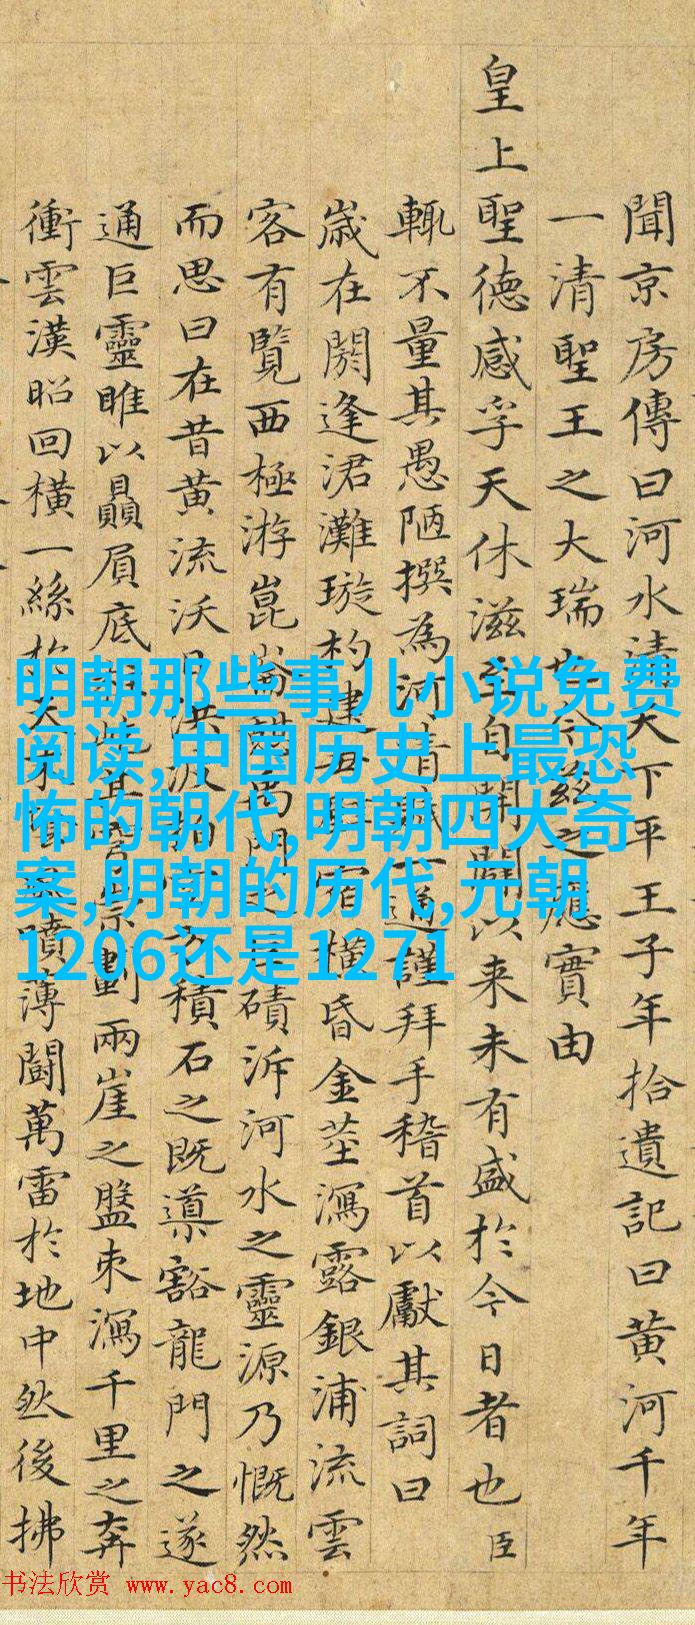 聞京房傳曰河水清天下平王子年拾遺記曰黄河千年
一清聖王之大瑞也今兹之應實由
皇上聖德感孚天休滋至自開闢以来未有盛於今日者也臣
輒不量其愚陋撰為河清一通謹拜手稽首以獻其詞曰
歳在閼逢涒灘璇杓建宿横昏金莖瀉露銀浦流雲
客有覧西極游崑崙禹門之磧泝河水之靈源乃慨然
而思曰在昔黄流沃日洪波積石之既導豁龍門之遂
通巨靈雎以贔屓底崇劃兩崖之盤束瀉千里之奔
衝雲漢昭回横一絲於天噴薄鬪萬雷於地中然後拂
明朝那些事儿小说免费
阅读,中国历史上最恐
怖的朝代,明朝四大奇
案,明朝的历代,元朝
1206还是1271
书法欣赏 www.yac8.com